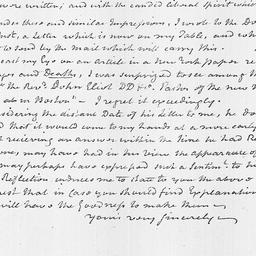 were written; and with the candid liberal spirit which
under these and similar Impressions, I wrote to the Do
not, a Letter which is now on my Table, and wh
to send by the Mail which will carry this.
cast my Eye on an article in a New York paper re
ges and Deaths, I was surprized to see among th
"the Revd John Eliot DD &c. Pastor of the new N
h in Boston" - I regret it exceedingly.
sidering the distant Date of his Letter to me, he do
ed that it would come to my hands at a more early
of recieving an answer within the Time he had Re
one, may have had in his view the appearance of
may perhaps have expressed such a Sentimt to
Reflection induces me to State to you the above
est that in Case you should find Explanation
will have the Goodness to make them -
Yours very Sincerely